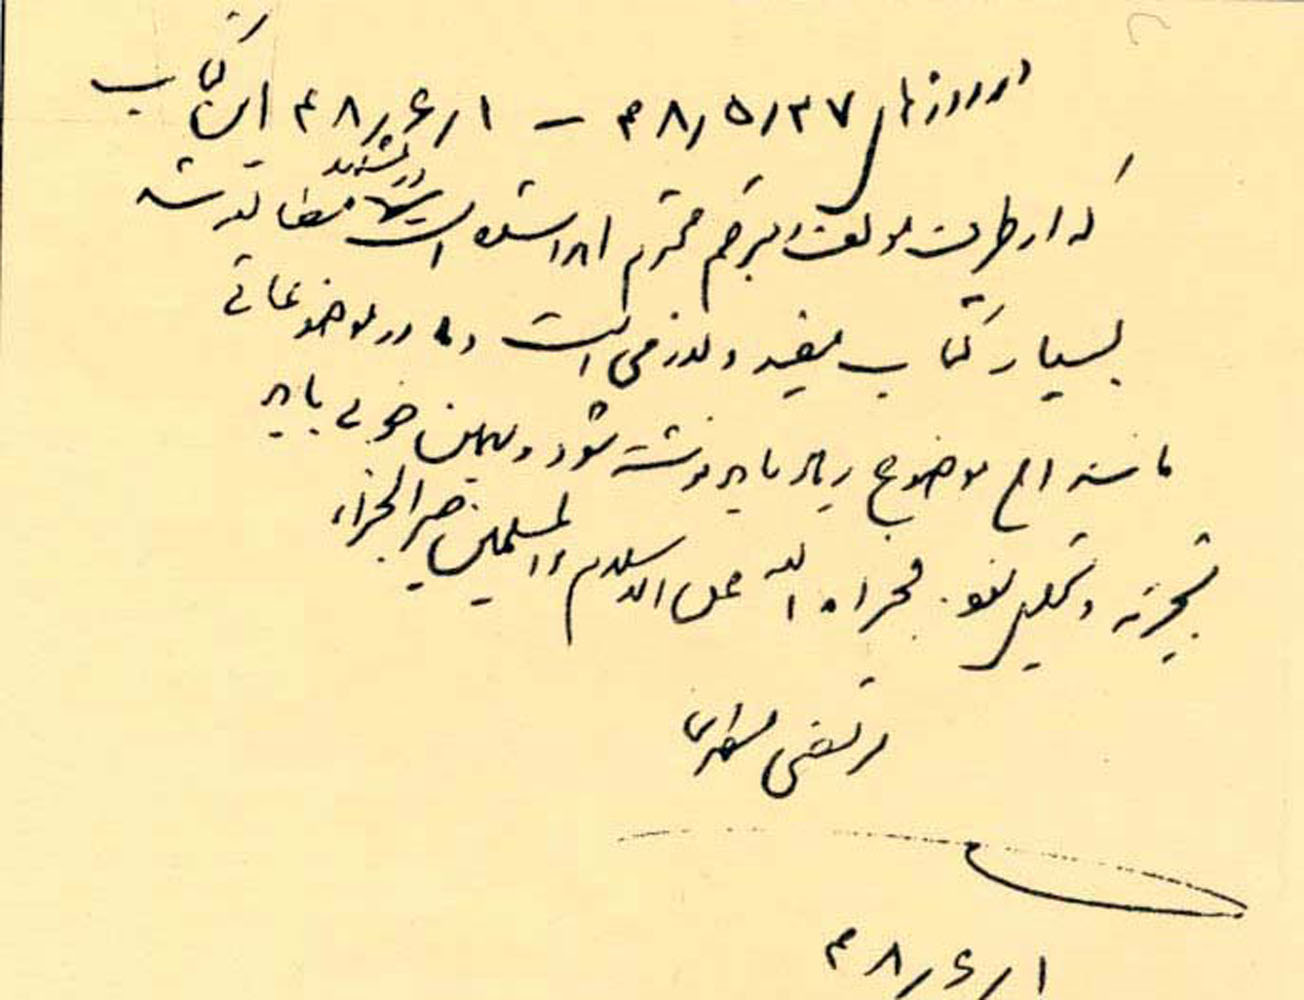 در روزهای ۴۸٫۵٫۲۷ – ۴۸٫۶٫۱ این کتاب
که از طرف مؤلف و مترجم محترم اهدا شده است در مشهد مطالعه شد
بسیار کتاب مفید و لازمی است و ما در موضوعاتی
مانند این موضوع زیاد باید نوشته شود و بهمین خوبی باید
تجزیه و تحلیل نمود. فجزاه الله عن الاسلام و المسلمین خیر الجزاء
مرتضی مطهری
۴۸٫۶٫۱